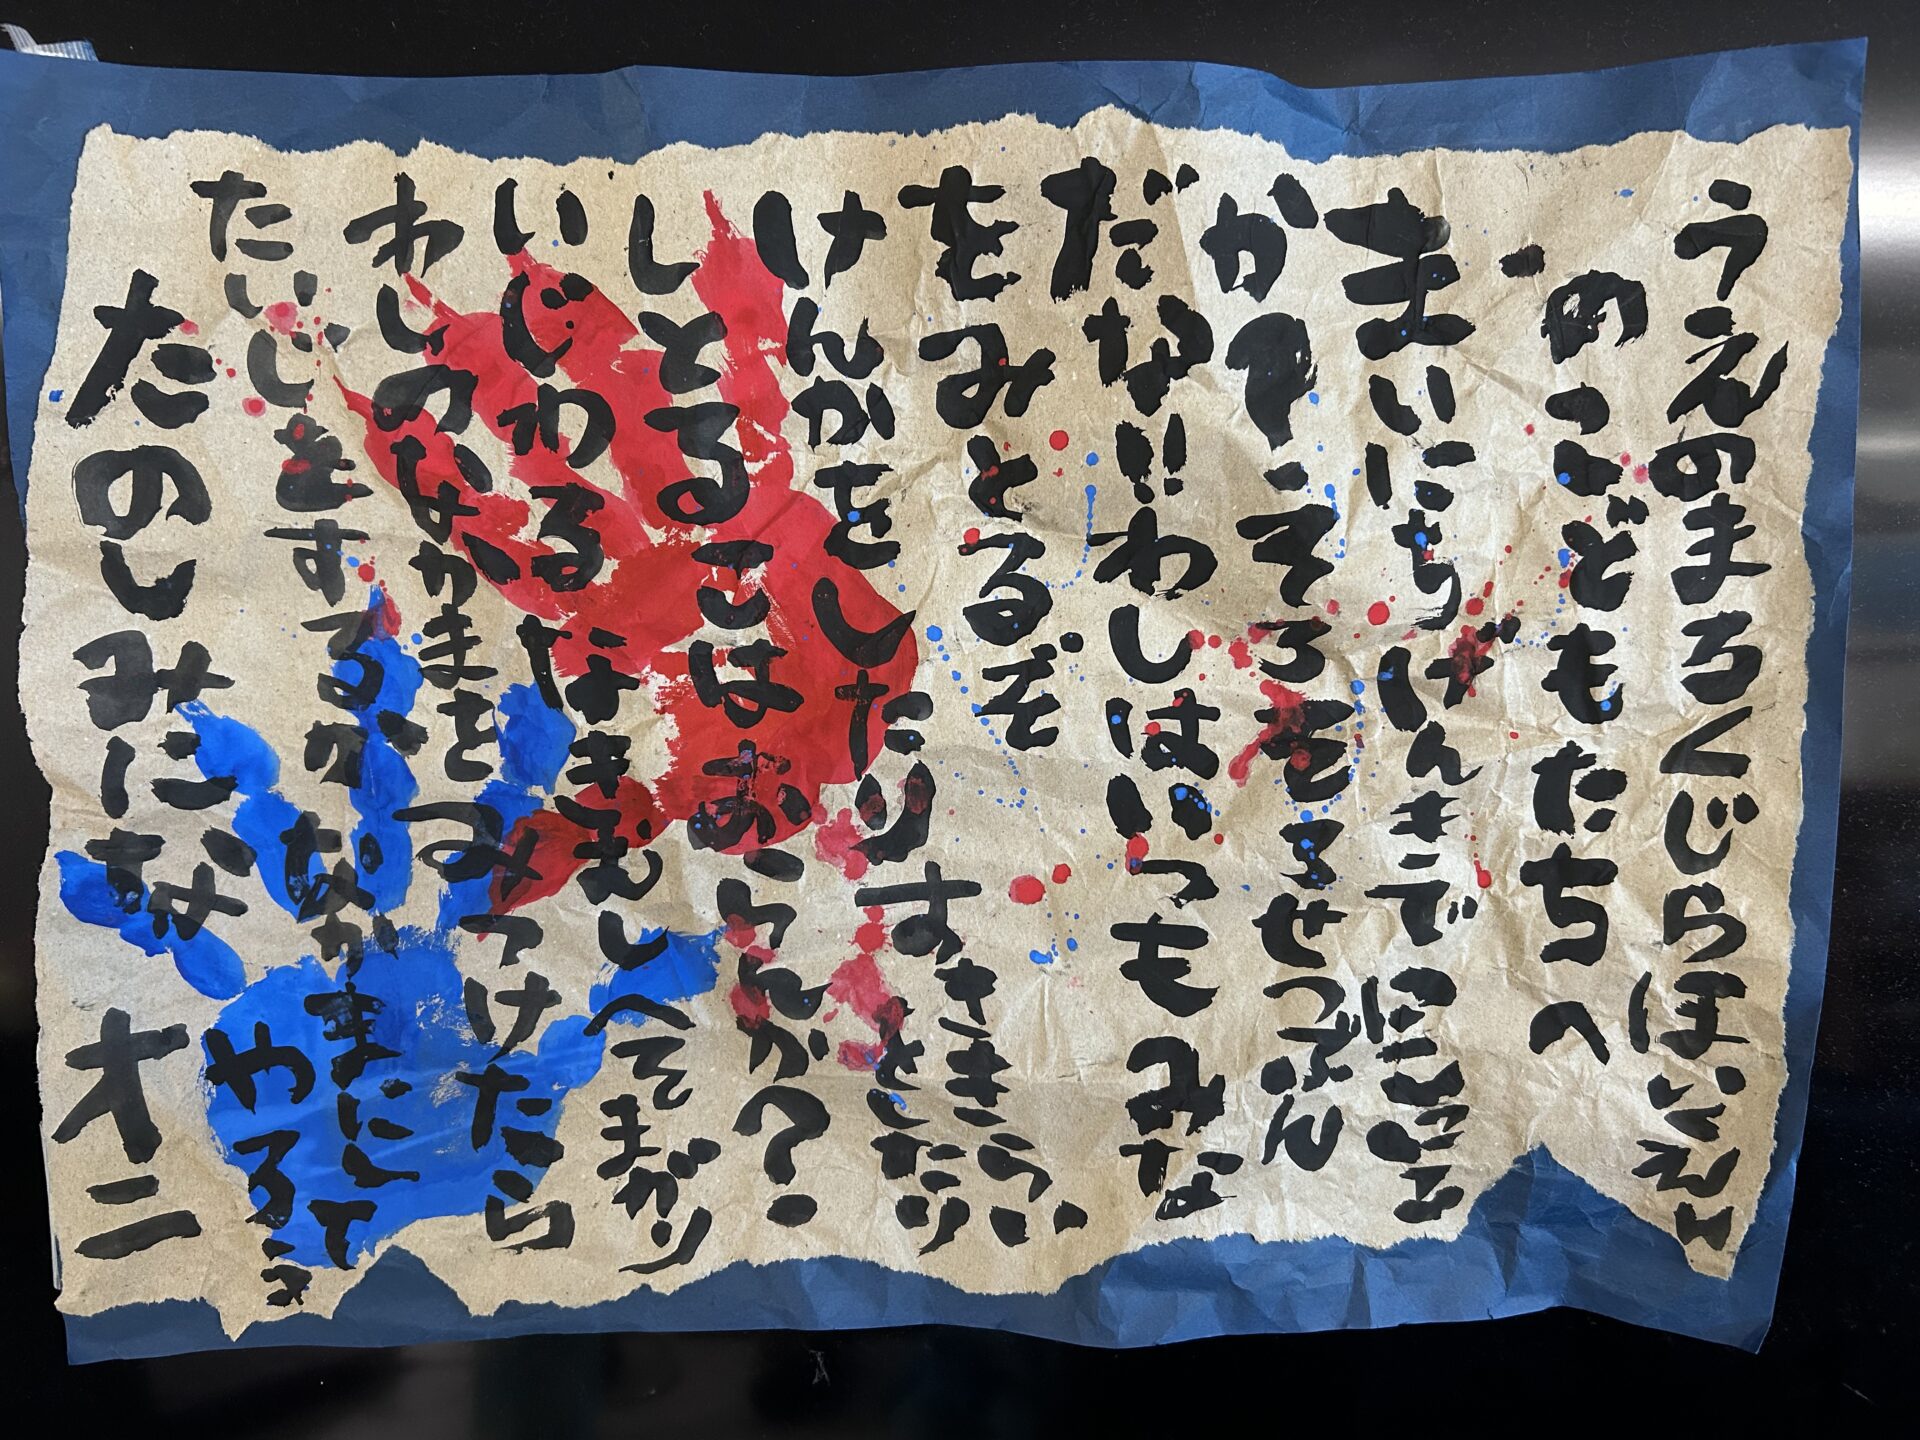 うえのまろくじらほいくえん
のこどもたちへ
まいにちげんきで
か?そろそろせつぶん
だな!!わしはいつもみな
をみとるぞ
けんかをしたりすききらい
としたり
しとるこはおらんか?
いじわるなきむしへそまがり
わしのなかまをみつけたら
たいじをするかなかまにして
たのしみにな オニ